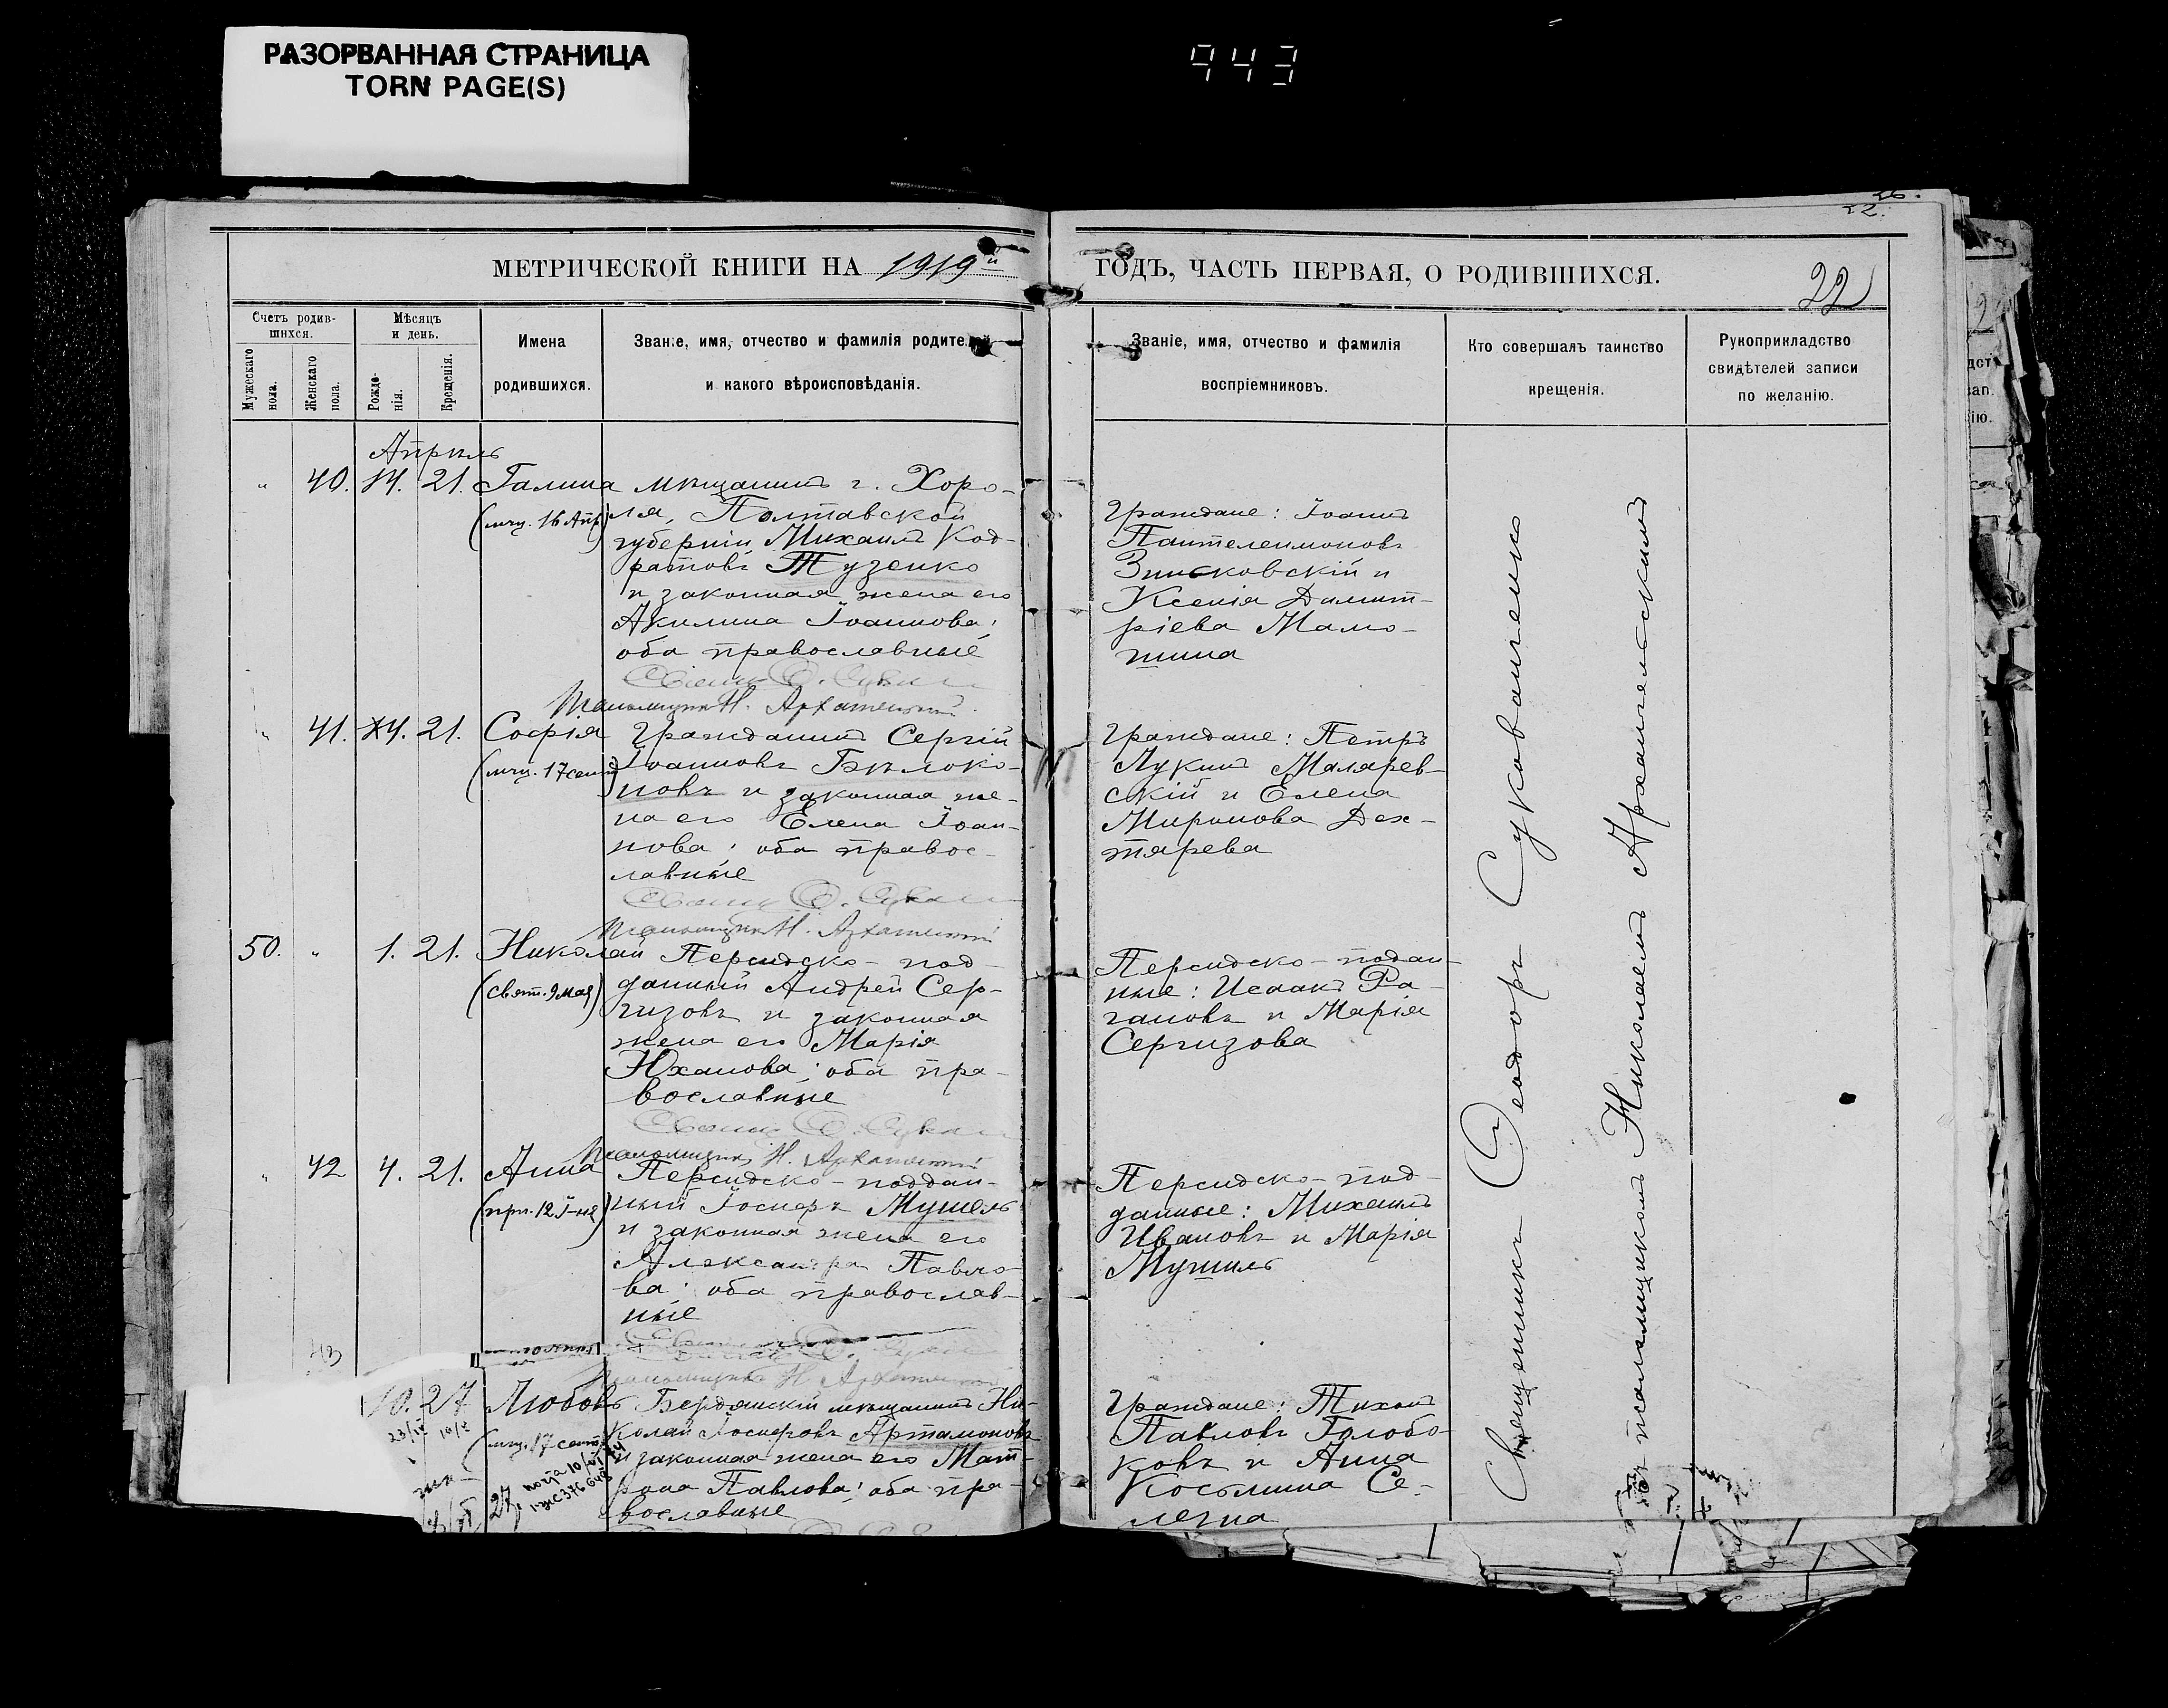 РАЗОРВАННАЯ СТРАНИЦА
TORN PAGE(S)
943
МЕТРИЧЕСКОЙ КНИГИ НА 1919й
ГОДЪ, ЧАСТЬ ПЕРВАЯ, О РОДИВШИХСЯ.
22
22.
Счетъ родив-
шихся.
Мужескаго
пола.
Женскаго
пола.
Мѣсяцъ
и день.
Рожде-
нія.
Крещенія.
Имена
родившихся.
Званіе, имя, отчество и фамилія родителей
и какого вѣроисповѣданія.
Званіе, имя, отчество и фамилія
воспріемниковъ.
Кто совершалъ таинство
крещенія.
Рукоприкладство
свидѣтелей записи
по желанію.
Апрѣль
" 40. 14. 21. Галина
(мчц. 16 Апр)
мѣщанинъ г. Хоро-
ля, Полтавской
губерніи Михаилъ Код-
ратовъ Тузенко
и законная жена его
Акилина Іоаннова;
оба православные
Псаломщикъ Н. Архангельскій
Граждане: Іоаннъ
Пантелеимоновъ
Зинсковскій и
Ксенія Димит-
ріева Мамо-
шина
" 41. 14. 21. Софія
(мчц. 17 сент)
Гражданинъ Сергій
Іоанновъ Бѣлоко-
новъ и законная же-
на его Елена Іоан-
нова; оба правос-
лавные
Псаломщикъ Н. Архангельскій
Граждане: Петръ
Лукинъ Маляров-
скій и Елена
Миронова Дех-
тярева
50. " 1. 21. Николай
(свят. 9 мая)
Персидско-под-
данный Андрей Сер-
гизовъ и законная
жена его Марія
Юханова; оба пра-
вославные
Псаломщикъ Н. Архангельскій
Персидско-поддан-
ные: Исаакъ Ра-
гановъ и Марія
Сергизова
" 42 4. 21. Анна
(прп. 12 І-ня)
Персидско-поддан-
ный Іосифъ Мушель
и законная жена его
Александра Павло-
ва; оба православ-
ные
Псаломщикъ Н. Архангельскій
Персидско-под-
данные: Михаилъ
Ивановъ и Марія
Мушиль
43
10. 27 Любовь
(мчц. 17 сент)
Бердянскій мѣщанинъ Ни-
колай Іосифовъ Артамоновъ
и законная жена его Мат-
рона Павлова; оба пра-
вославные
Граждане: Тихонъ
Павловъ Голобо-
ковъ и Анна
Косьмина Се-
легна
Священникъ Ѳеодоръ Суковаченко
съ псаломщикомъ Николаемъ Архангельскимъ